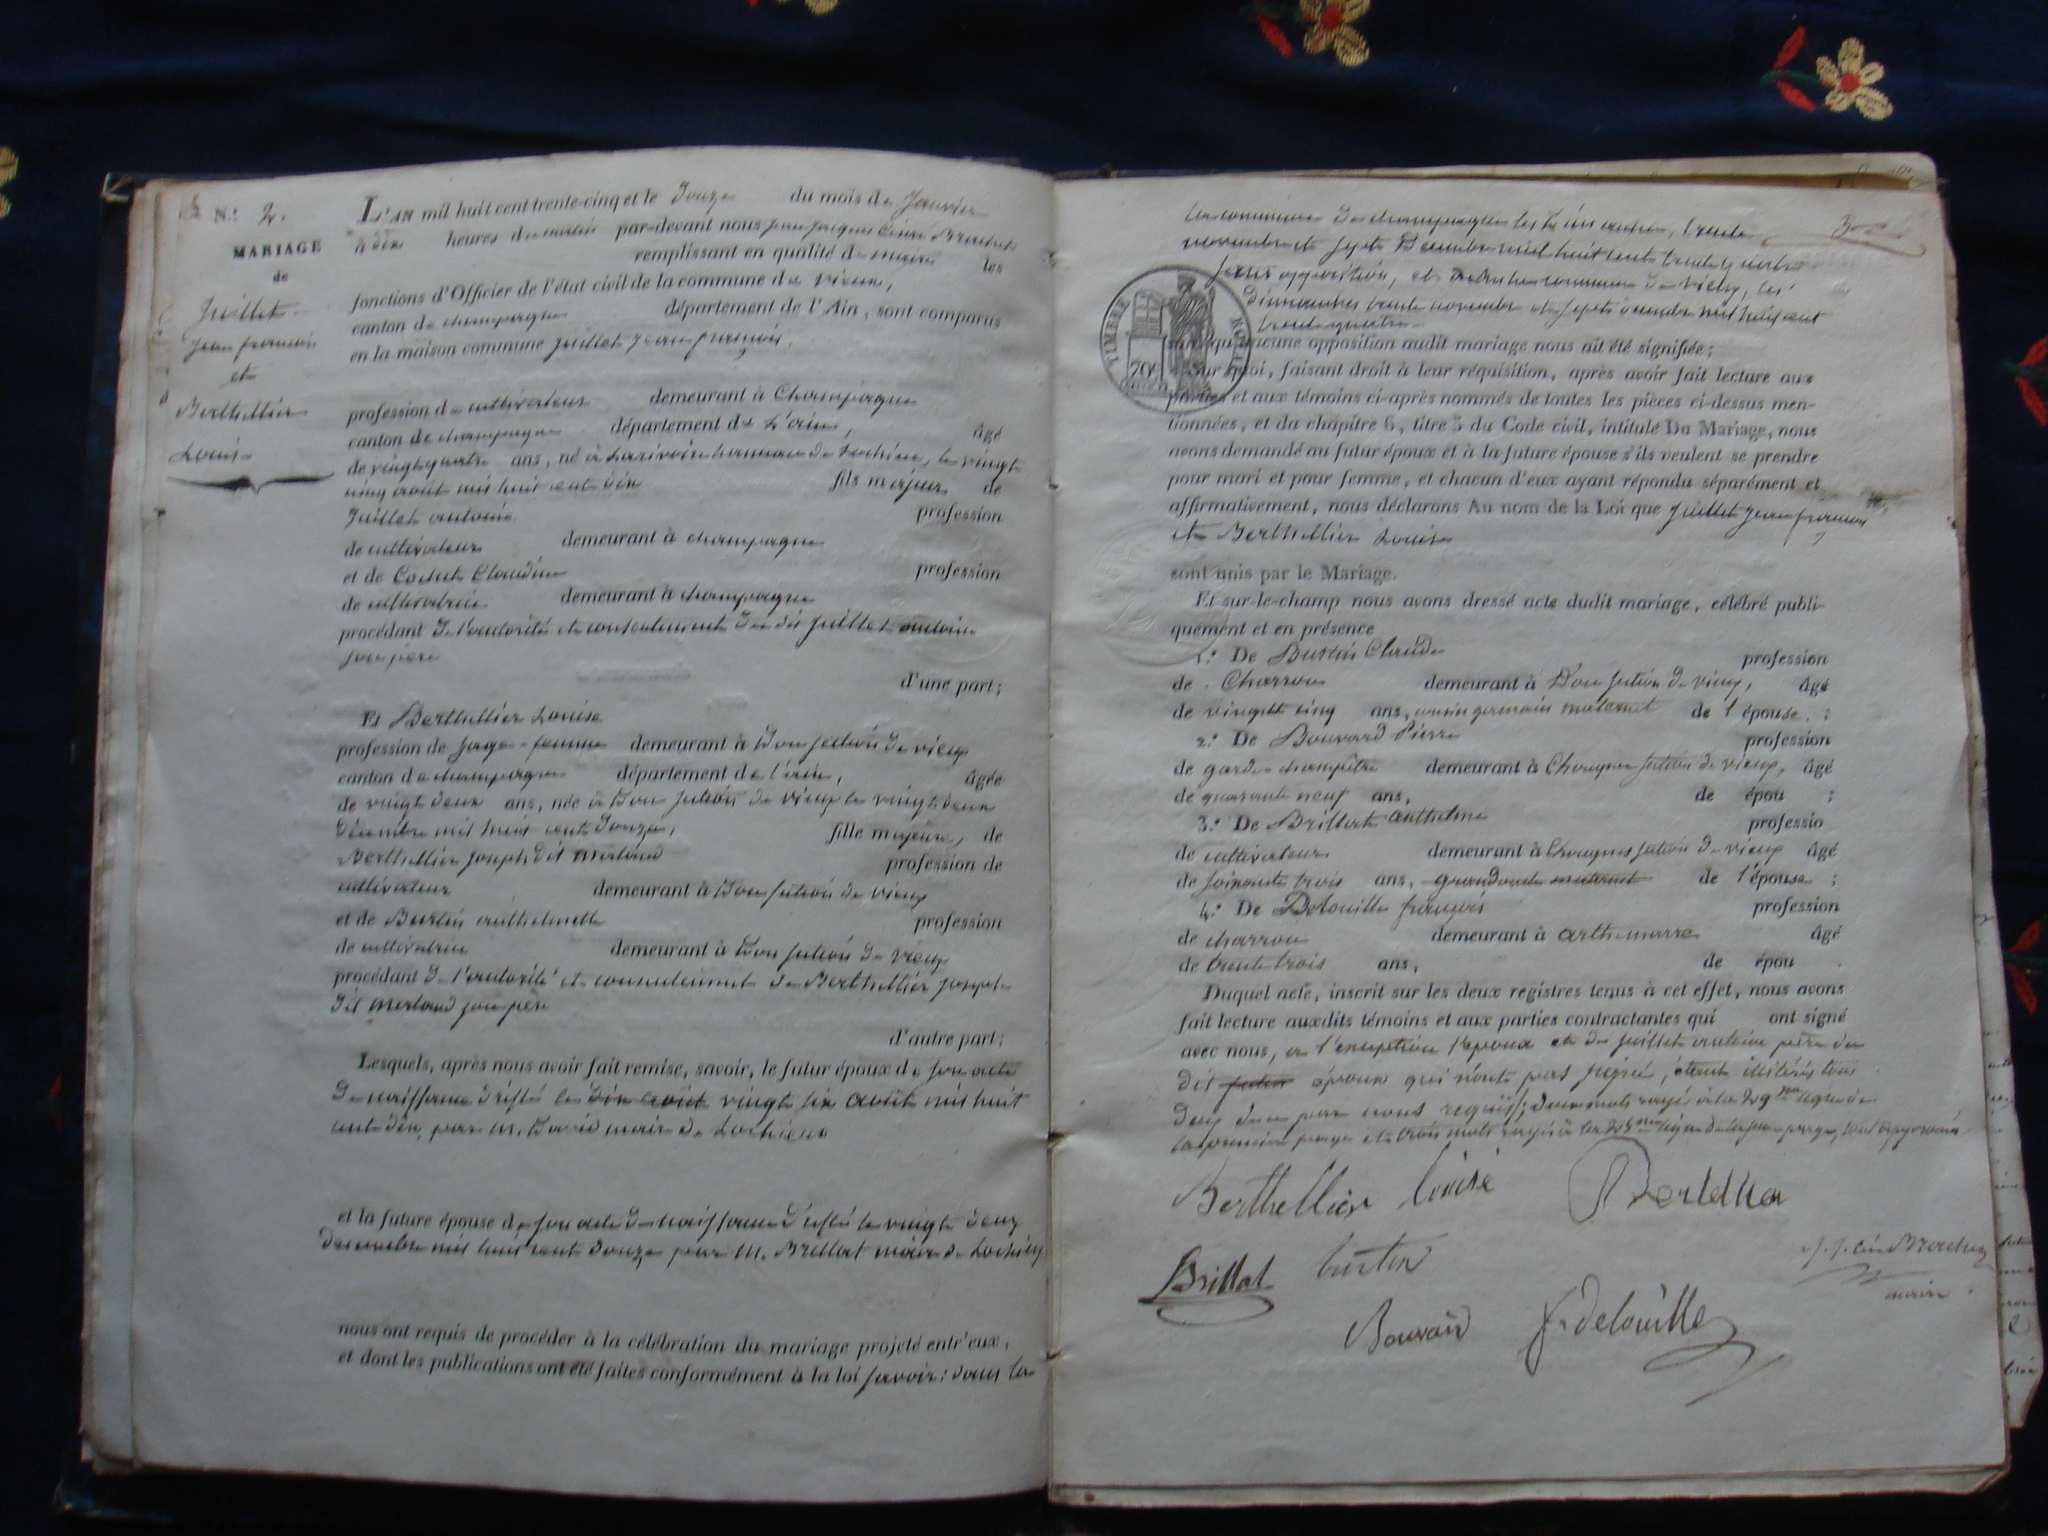 N.º 2.
MARIAGE
de
Juillet
Jean françois
et
Berthellier
Louise
L'AN mil huit cent trente-cinq et le Douze du mois de Janvier
à dix heures du matin par-devant nous Jean Jacques
remplissant en qualité de maire les
fonctions d'Officier de l'état civil de la commune de vieux,
canton de champagne département de l'Ain, sont comparus
en la maison commune Juillet Jean françois.
profession de cultivateur demeurant à Champagne
canton de champagne département de L'ain, âgé
de vingt quatre ans, né à hameau de Lochieu, le vingt
cinq août mil huit cent dix fils majeur de
Juillet antoine profession
de cultivateur demeurant à champagne
et de Claudine profession
de cultivatrice demeurant à champagne
procédant de l'autorité et consentement du dit Juillet antoine
son père
d'une part;
Et Berthellier Louise
profession de sage-femme demeurant à Don section de vieux
canton de champagne département de l'ain, âgée
de vingt deux ans, née à Don section de vieux le vingt deux
décembre mil huit cent douze, fille majeure, de
Berthellier joseph dit merland profession de
cultivateur demeurant à Don section de vieux
et de Burtin anthelmette profession
de cultivatrice demeurant à Don section de vieux
procédant de l'autorité et consentement de Berthellier joseph
dit merland son père
d'autre part;
Lesquels, après nous avoir fait remise, savoir, le futur époux de son acte
de naissance dressé le dix août vingt six août mil huit
cent dix, par M. maire de Lochieu
et la future épouse de son acte de naissance dressé le vingt deux
décembre mil huit cent douze par M. Brillat maire de Lochieu
nous ont requis de procéder à la célébration du mariage projeté entr'eux,
et dont les publications ont été faites conformément à la loi savoir: dans la
commune de champagne les trente
novembre et sept Décembre mil huit cent trente quatre
sans opposition, et dans la commune de vieux, les
Dimanches trente novembre et sept décembre mil huit cent
trente quatre
TIMBRE ROYAL
70c
sans qu'aucune opposition audit mariage nous ait été signifiée;
Sur quoi, faisant droit à leur réquisition, après avoir fait lecture aux
parties et aux témoins ci-après nommés de toutes les pièces ci-dessus men-
tionnées, et du chapitre 6, titre 5 du Code civil, intitulé Du Mariage, nous
avons demandé au futur époux et à la future épouse s'ils veulent se prendre
pour mari et pour femme, et chacun d'eux ayant répondu séparément et
affirmativement, nous déclarons Au nom de la Loi que Juillet Jean françois
et Berthellier Louise
sont unis par le Mariage.
Et sur-le-champ nous avons dressé acte dudit mariage, célébré publi-
quement et en présence
1.º De Burtin Claude profession
de Charron demeurant à Don section de vieux, âgé
de vingt cinq ans, cousin germain maternel de l'épouse ;
2.º De Bouvard Pierre profession
de garde champêtre demeurant à Chougnes section de vieux, âgé
de quarante neuf ans, de épou ;
3.º De Brillat anthelme professio
de cultivateur demeurant à Chougnes section de vieux âgé
de soixante trois ans, grand oncle maternel de l'épouse ;
4.º De Delouille françois profession
de charron demeurant à arthemarre âgé
de trente trois ans, de épou .
Duquel acte, inscrit sur les deux registres tenus à cet effet, nous avons
fait lecture auxdits témoins et aux parties contractantes qui ont signé
avec nous, à l'exception l'époux et du Juillet antoine père du
dit futur époux qui n'ont pas signé, étant illitérés tous
deux de ce par nous requis; deux mots rayés à la 29me ligne de
la première page et trois mots rayés à la ligne de la page, tout approuvé
Berthellier Louise
Brillat burtin
maire
Bouvard f. delouille